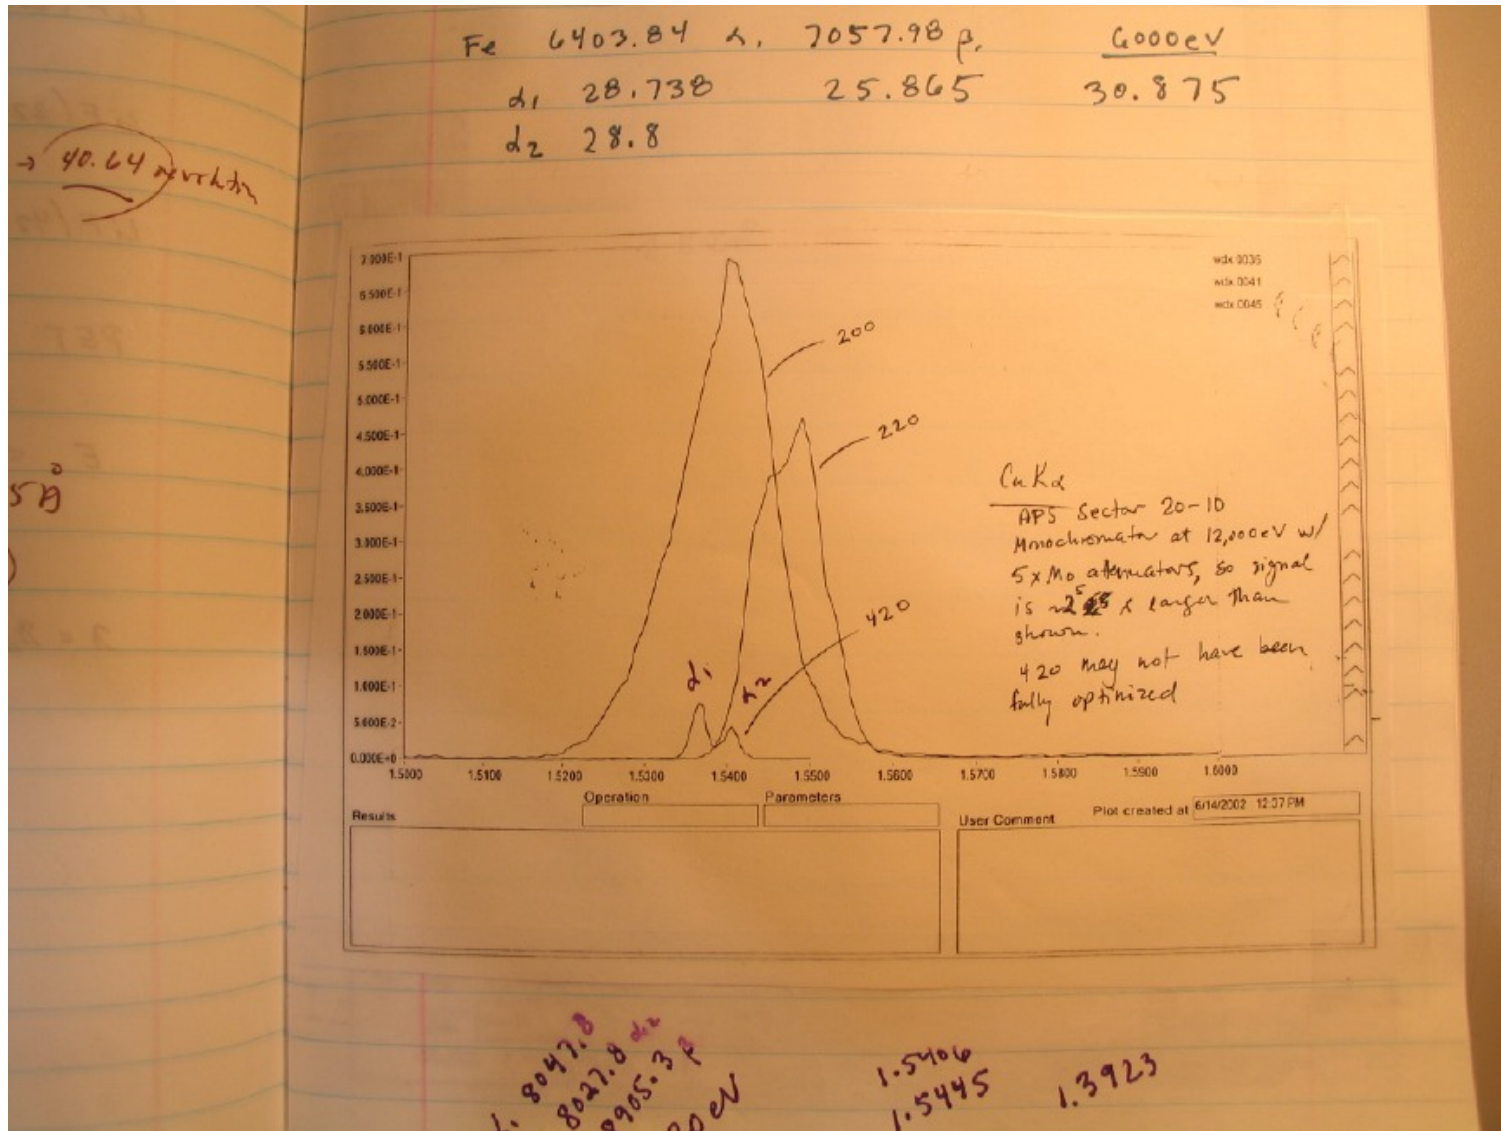 Fe 6403.84 α, 7057.98 β, 6000eV
α1 28.738 25.865 30.875
α2 28.8
→ 40.64
PET
E
5Å
7.000E-1
6.500E-1
6.000E-1
5.500E-1
5.000E-1
4.500E-1
4.000E-1
3.500E-1
3.000E-1
2.500E-1
2.000E-1
1.500E-1
1.000E-1
5.000E-2
0.000E+0
1.5000 1.5100 1.5200 1.5300 1.5400 1.5500 1.5600 1.5700 1.5800 1.5900 1.6000
wdx.0035
wdx.0041
wdx.0045
200
220
420
α1
α2
Cu Kα
APS Sector 20-ID
Monochromator at 12,000eV w/
5 x Mo attenuators, so signal
is ~2⁵ x larger than
shown.
420 may not have been
fully optimized
Operation Parameters
Results User Comment Plot created at 6/14/2002 12:37 PM
8047.8
8027.8 α2
8905.3 β
eV
1.5406
1.5445 1.3923